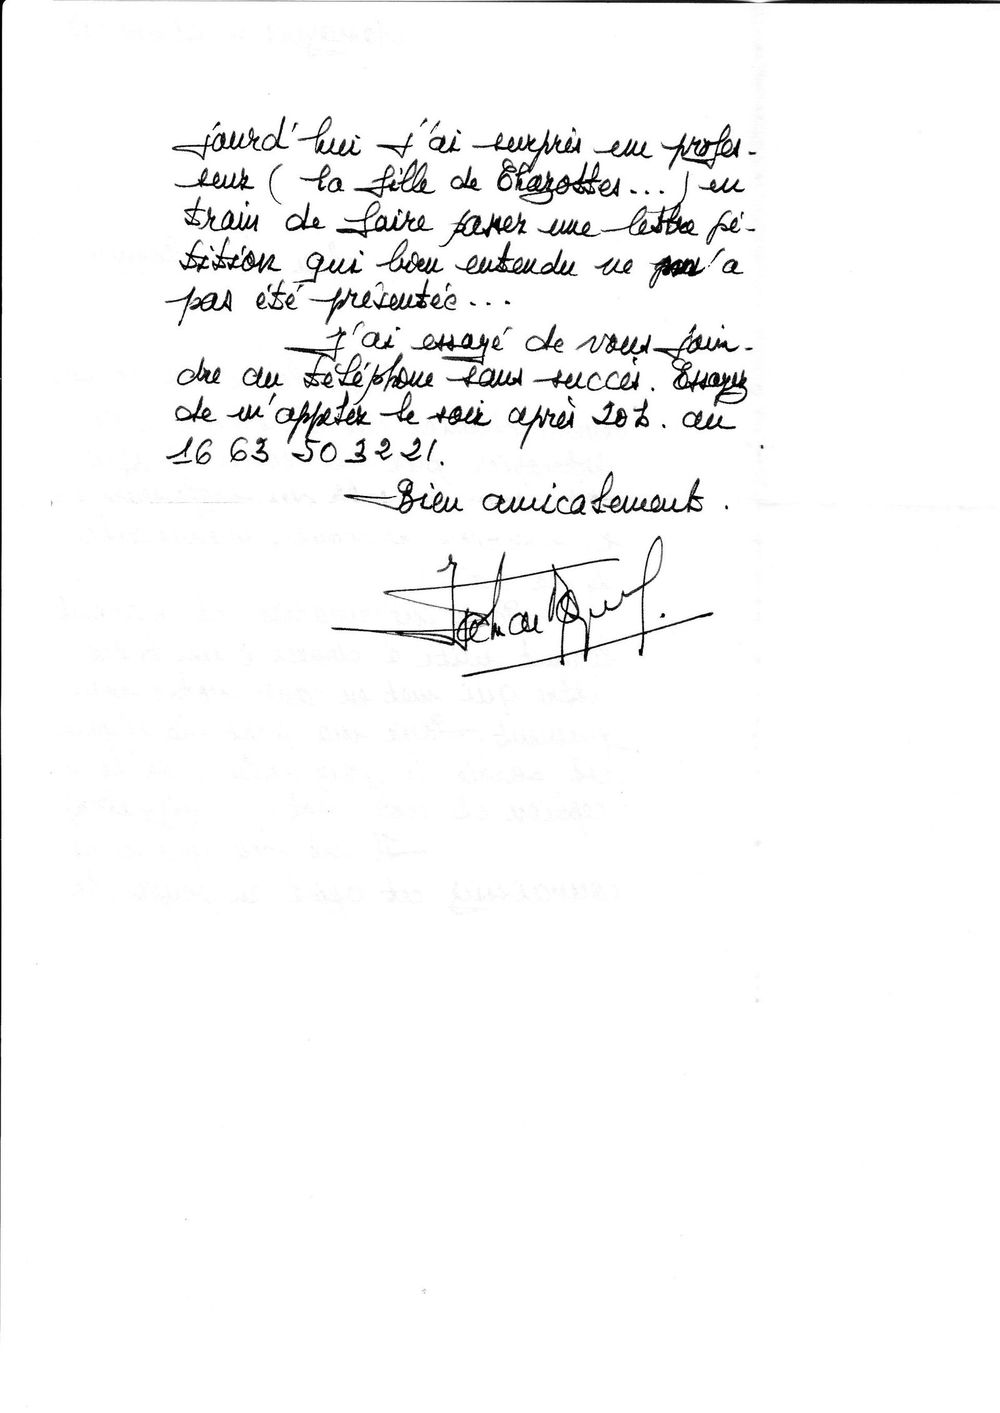 jourd'hui j'ai surpris un profes-
seur ( la fille de Chazottes... ) en
train de faire passer une lettre pé-
tition qui bien entendu ne m'a
pas été présentée...
J'ai essayé de vous join-
dre au téléphone sans succès. Essayez
de m'appeler le soir après 20h. au
16 63 50 32 21.
Bien amicalement.